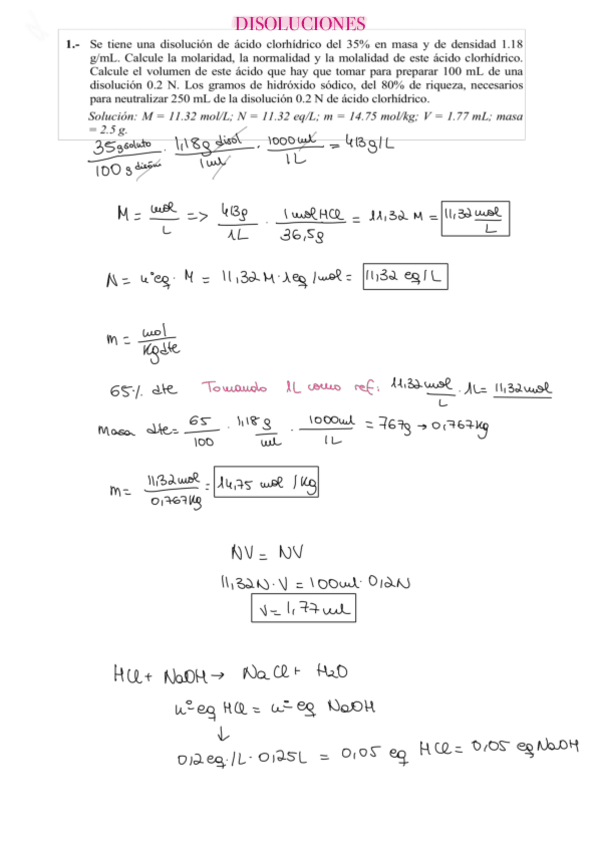 DISOLUCIONES
1.- Se tiene una disolución de ácido clorhídrico del 35% en masa y de densidad 1.18
g/mL. Calcule la molaridad, la normalidad y la molalidad de este ácido clorhídrico.
Calcule el volumen de este ácido que hay que tomar para preparar 100 mL de una
disolución 0.2 N. Los gramos de hidróxido sódico, del 80% de riqueza, necesarios
para neutralizar 250 mL de la disolución 0.2 N de ácido clorhídrico.
Solución: M = 11.32 mol/L; N = 11.32 eq/L; m = 14.75 mol/kg; V = 1.77 mL; masa
= 2.5 g.
35 g soluto / 100 g disoluc · 1,18 g disol / 1 ml · 1000 ml / 1L = 413 g/L
M = mol / L => 413g / 1L · 1 mol HCl / 36,5g = 11,32 M = 11,32 mol / L
N = nºeq · M = 11,32 M · 1eq/mol = 11,32 eq/L
m = mol / Kg dte
65% dte Tomando 1L como ref: 11,32 mol / L · 1L = 11,32 mol
Masa dte = 65 / 100 · 1,18 g / ml · 1000ml / 1L = 767g → 0,767Kg
m = 11,32 mol / 0,767Kg = 14,75 mol / Kg
NV = NV
11,32N · V = 100ml · 0,2N
V = 1,77 ml
HCl + NaOH → NaCl + H2O
nº eq HCl = nº eq NaOH
↓
0,2 eq/L · 0,25L = 0,05 eq HCl = 0,05 eq NaOH